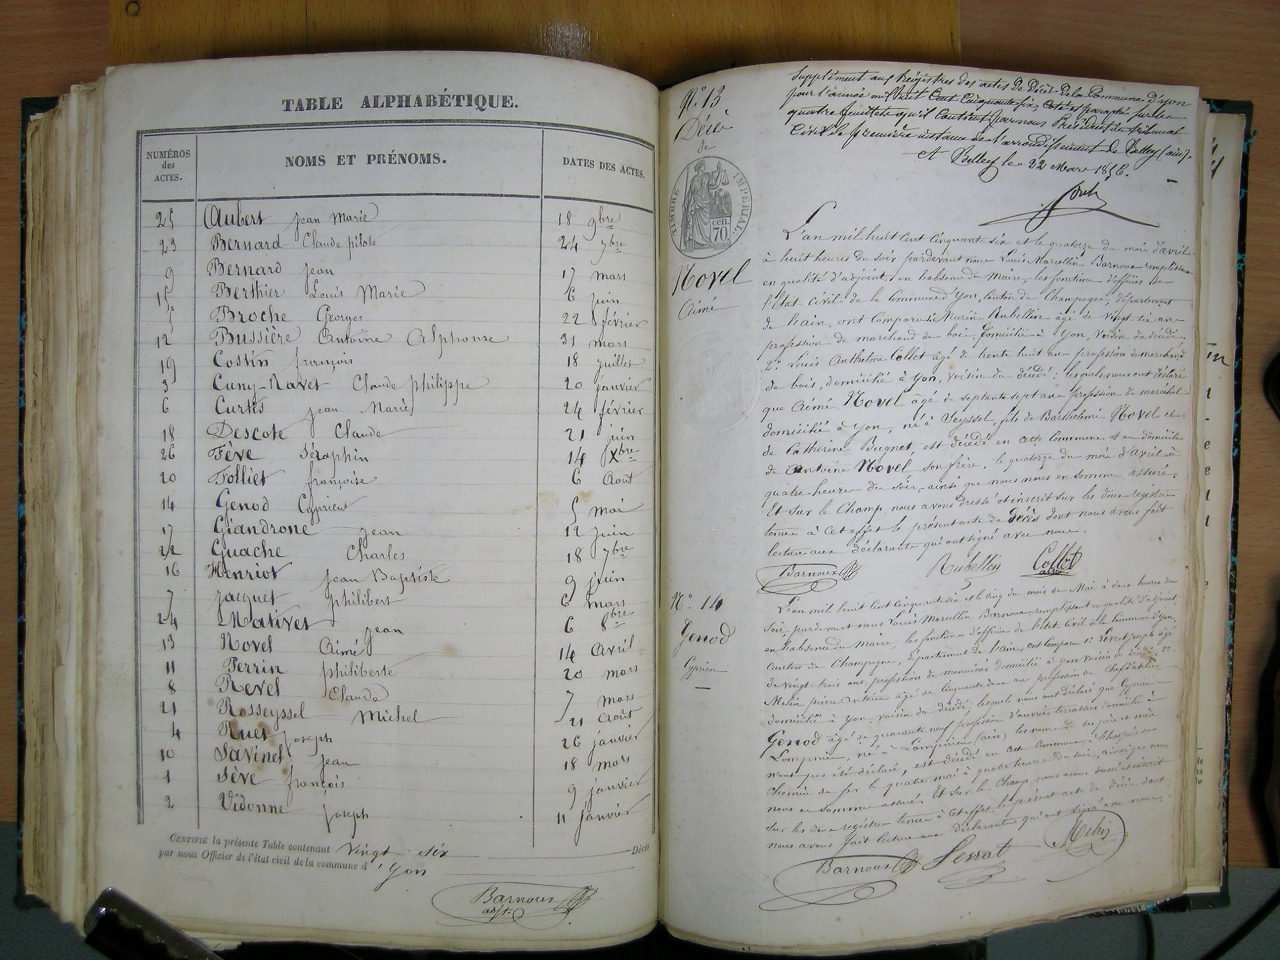 TABLE ALPHABÉTIQUE.
NUMÉROS des ACTES. NOMS ET PRÉNOMS. DATES DES ACTES.
25 Aubert Jean Marie 18 9bre
23 Bernard Claude pilote 24 7bre
9 Bernard Jean 17 mars
15 Berthier Louis Marie 6 juin
5 Broche Georges 22 février
12 Bussière Antoine Alphonse 31 mars
19 Costin françois 18 juillet
3 Cuny-Ravet Claude philippe 20 janvier
6 Curtet Jean Marie 24 février
18 Descote Claude 21 juin
26 Fève Séraphin 14 Xbre
20 Folliet françoise 6 Août
14 Genod Cyprien 5 mai
17 Giandrone Jean 12 juin
22 Guache Charles 18 7bre
16 Henriot Jean Baptiste 9 juin
7 Jacquet philibert 6 mars
24 Mativet Jean 6 8bre
13 Novel Aimé 14 Avril
11 Perrin philiberte 20 mars
8 Revel Claude 7 mars
21 Rosseyssel Michel 21 Août
4 Ruet Joseph 26 janvier
10 Savinet Jean 18 mars
1 Sève françois 9 janvier
2 Vidonne Joseph 11 janvier
CERTIFIÉ la présente Table contenant vingt six Décès
par nous Officier de l'état civil de la commune d'Yon
Barnoux
adjt
Supplément aux Registres des actes de Décès de la Commune d'yon
pour l'année mil huit Cent Cinquante six, coté et paraphé sur les
quatre feuillets qu'il contient par nous Président du tribunal
Civil de première instance de l'arrondissement de Belley (ain).
A Belley le 22 Mars 1856.
N° 13
Décès
de
TIMBRE IMPÉRIAL
70 cen.
Novel
Aimé
L'an mil huit cent cinquante six et le quatorze du mois d'avril
à huit heures du soir pardevant nous Louis Marcellin Barnoux remplissant
en qualité d'adjoint, en l'absence du Maire, les fonctions d'officier de
l'état civil de la Commune d'Yon, Canton de Champagne, département
de l'ain, ont Comparu Rubellin âgé de vingt six ans
profession de marchand de bois, domicilié à Yon, voisin du décédé
2° Louis Anthelme Collot âgé de trente huit ans profession de marchand
de bois, domicilié à Yon, voisin du décédé; lesquels nous ont déclaré
que Aimé Novel âgé de septante sept ans profession de maréchal
domicilié à Yon, né à Seyssel, fils de Barthelemi Novel et
de Catherine Bugnet, est décédé en cette Commune et au domicile
de Antoine Novel son frère, le quatorze du mois d'avril à
quatre heures du soir, ainsi que nous nous en sommes assuré.
Et sur le Champ nous avons dressé et inscrit sur les deux registres
tenus à Cet effet le présent acte de décès dont nous avons fait
lecture aux déclarants qui ont signé avec nous.
Barnoux Rubellin Collot
N° 14
Genod
Cyprien
L'an mil huit Cent Cinquante six et le cinq du mois de Mai à deux heures du
soir, pardevant nous Louis Marcellin Barnoux remplissant en qualité d'adjoint
en l'absence du Maire, les fonctions d'officier de l'état Civil de la Commune d'yon,
Canton de Champagne, département de l'ain, ont Comparu 1° joseph âgé
de vingt trois ans, profession de domicilié à yon voisin du décédé 2°
pierre Antoine âgé de Cinquante deux ans profession de
domicilié à Yon, voisin du décédé, lesquels nous ont déclaré que Cyprien
Genod âgé de quarante neuf profession d'ouvrier terrassier domicilié à
Lompnieu, né à Lompnieu (ain)
déclaré, est décédé en cette Commune
chemin de fer le quatre mai à quatre heures du soir, ainsi que nous
nous en sommes assuré. Et sur le Champ nous avons dressé et inscrit
sur les deux registres tenus à Cet effet le présent acte de décès dont
nous avons fait lecture aux déclarants qui ont signé avec nous.
Barnoux